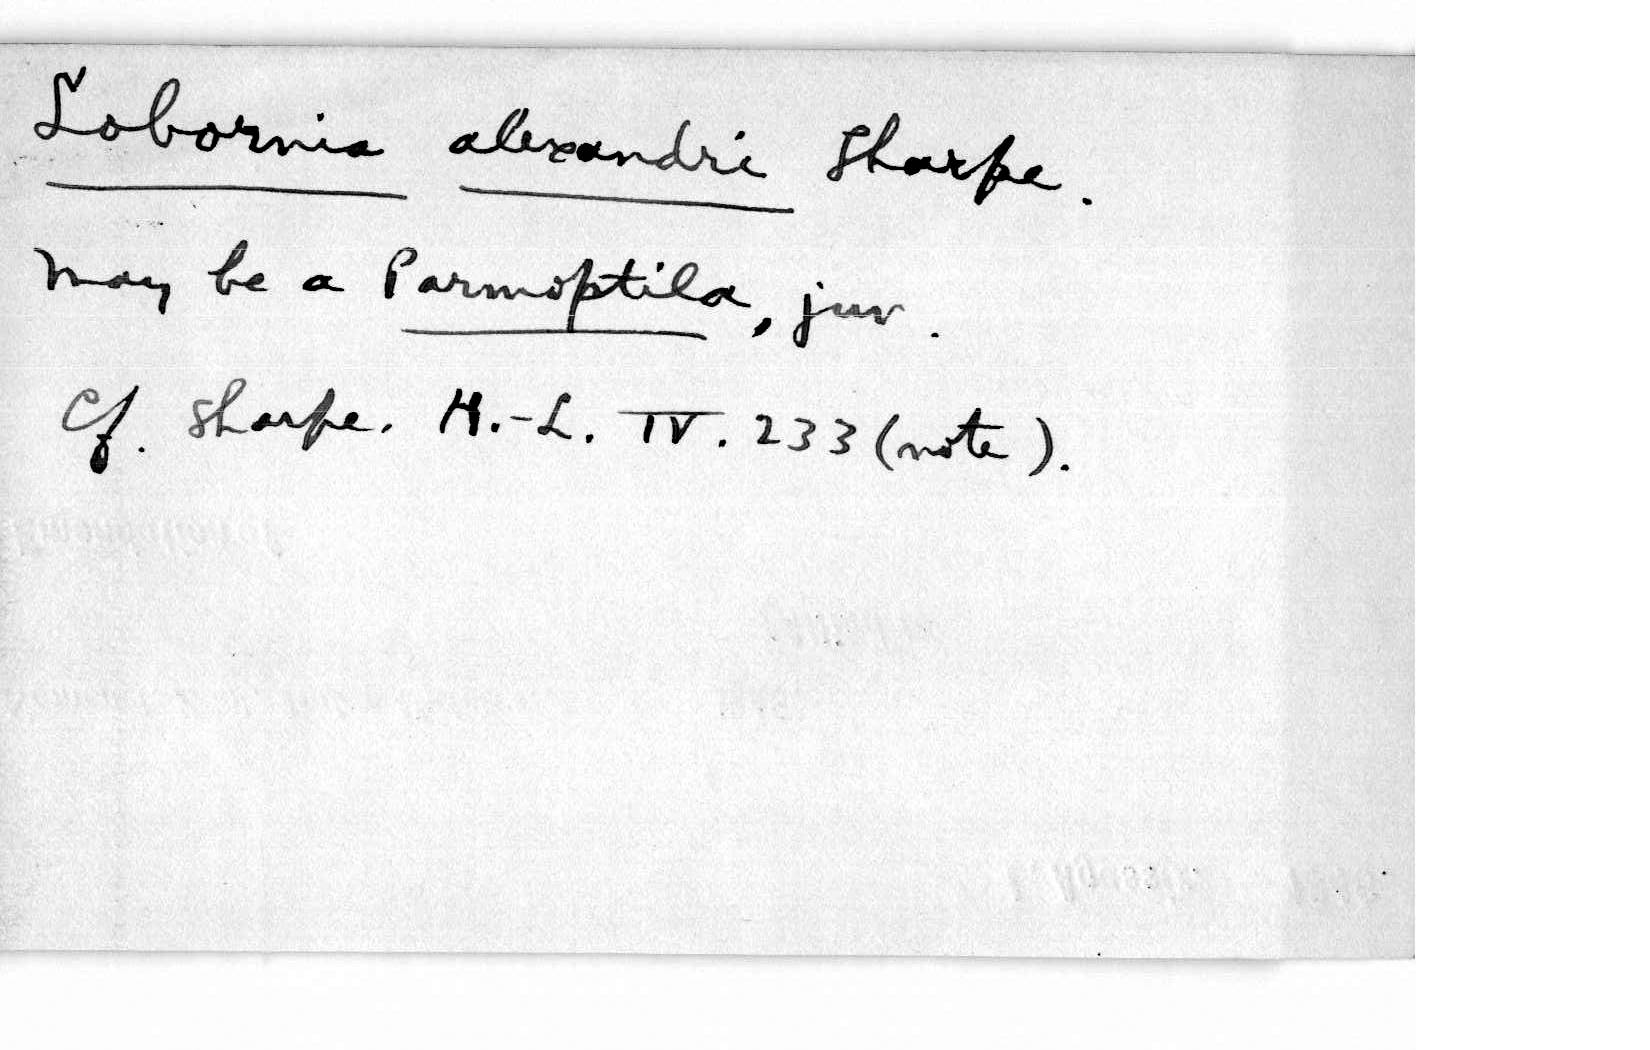 Lobornis alexandri Sharpe.
may be a Parmoptila, juv.
Cf. Sharpe. H.-L. IV. 233 (note).